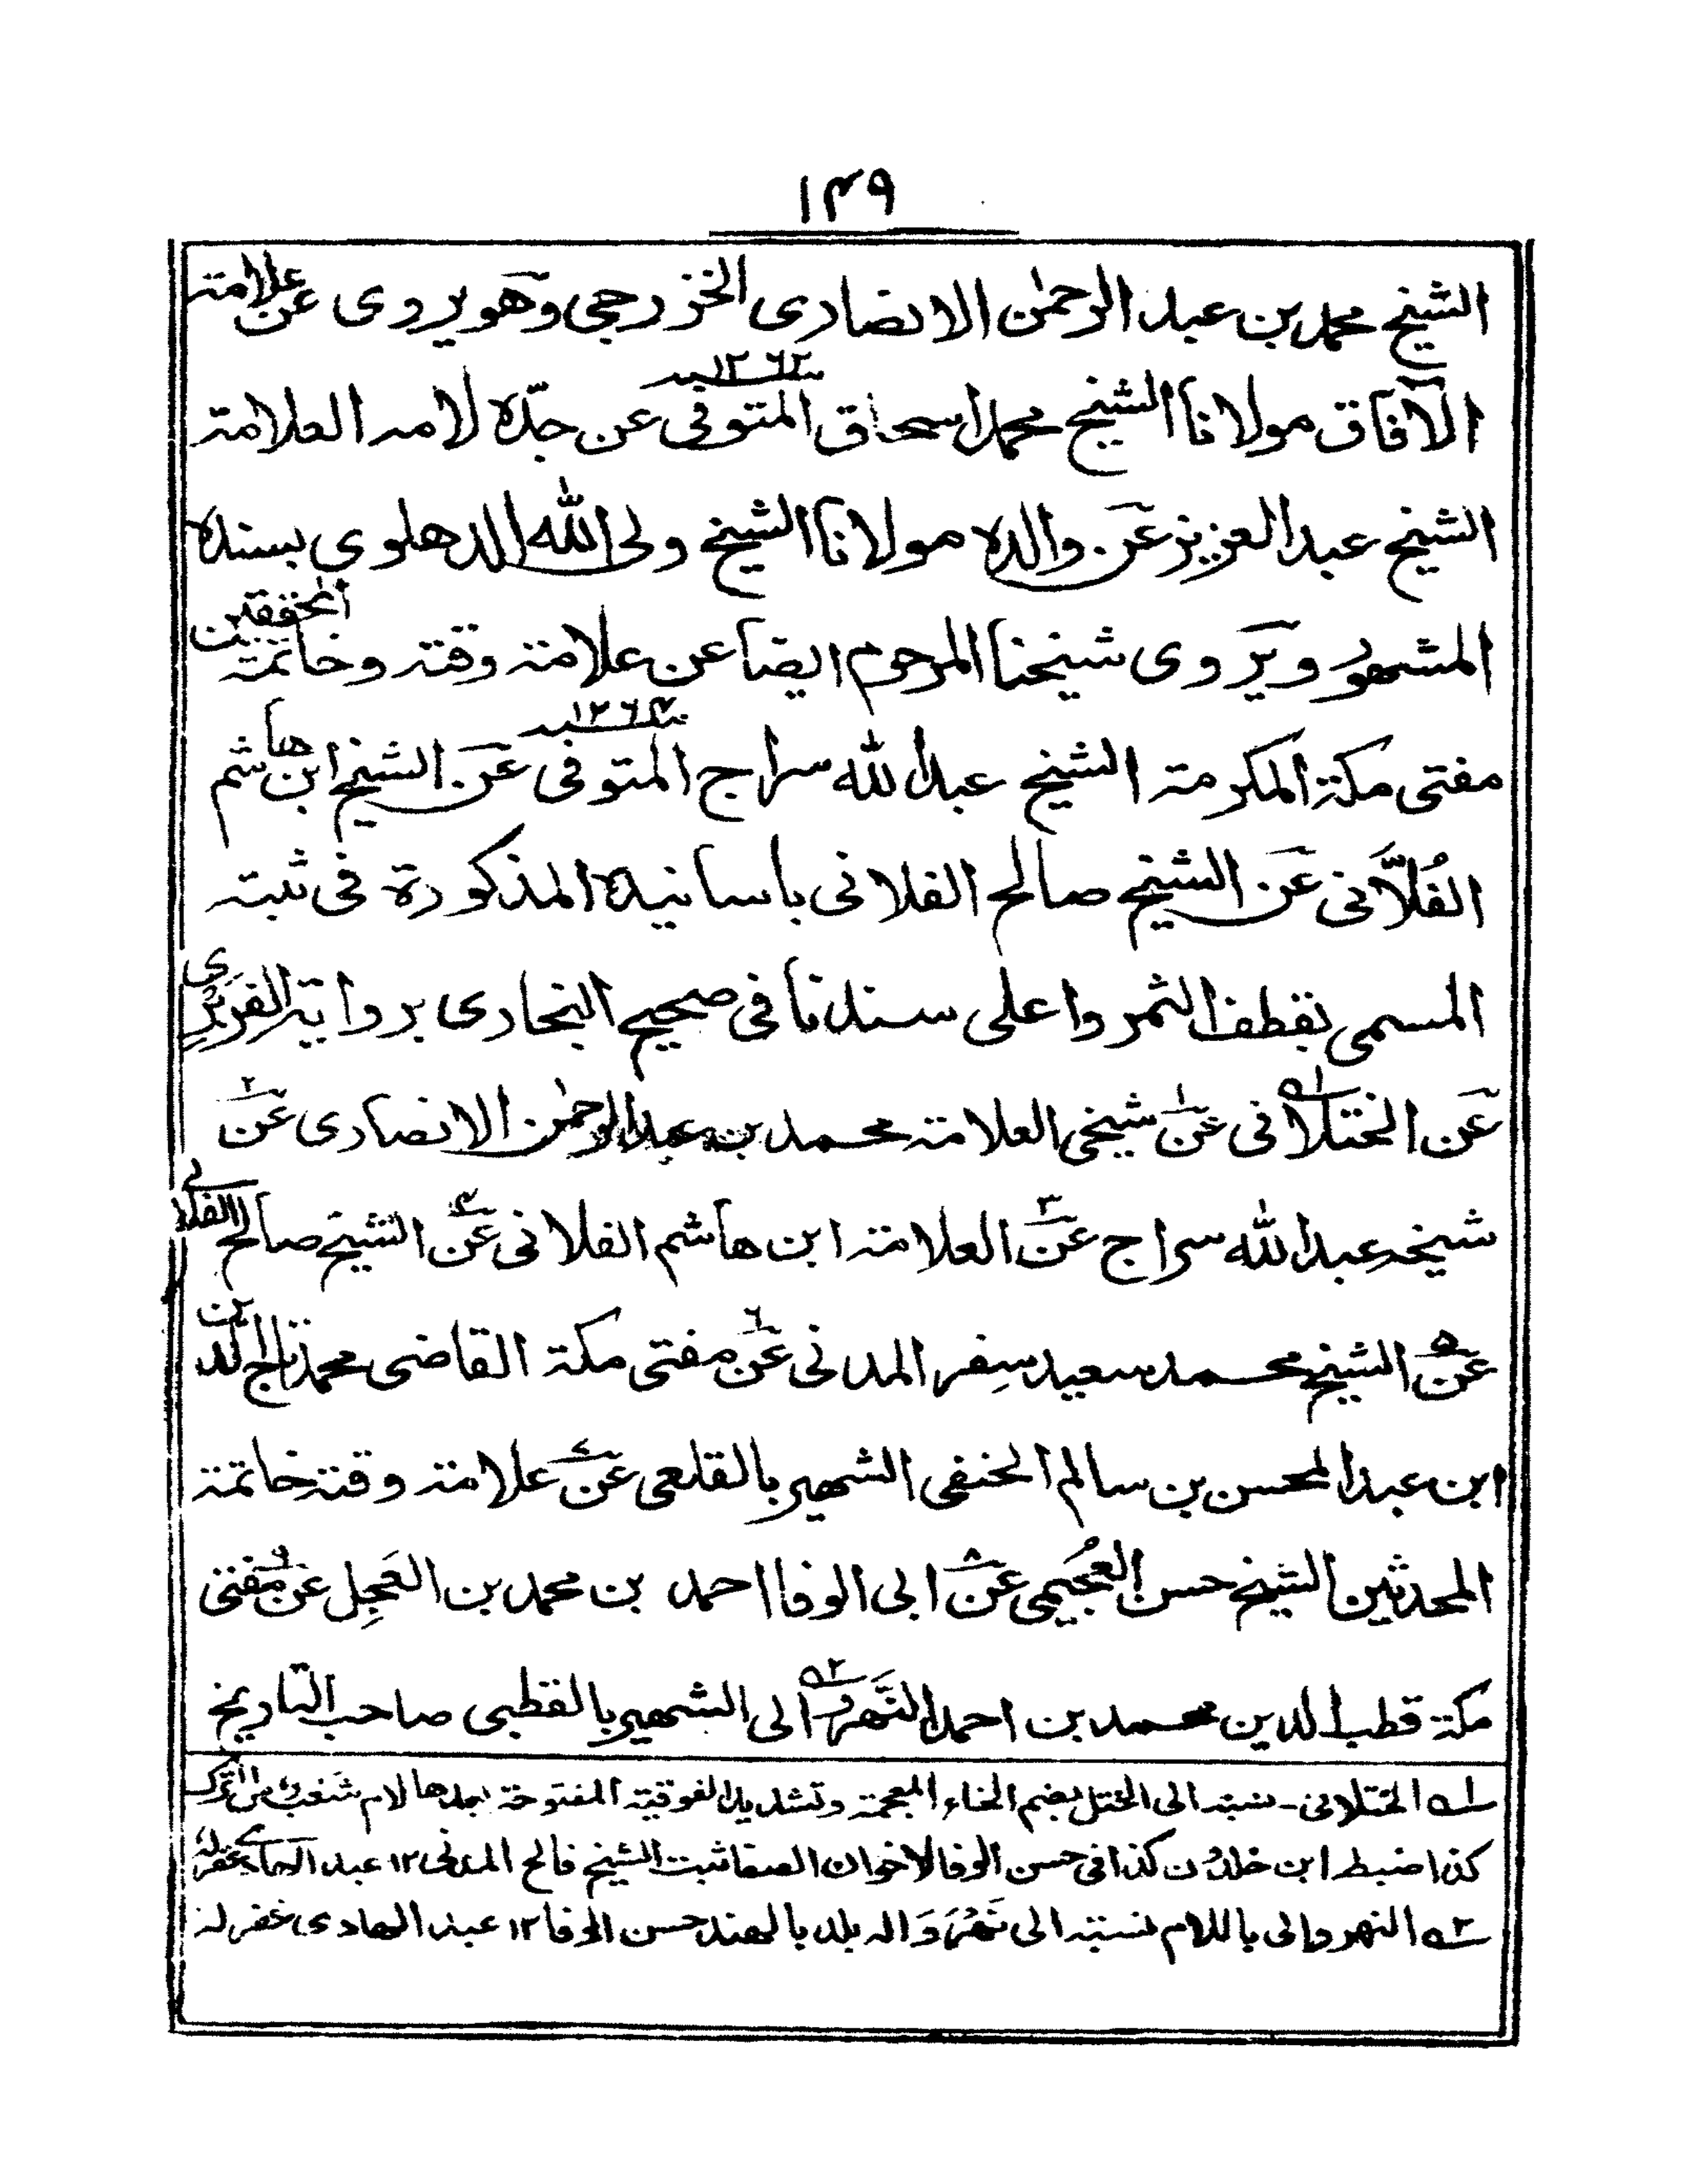 ١٤٩
الشيخ محمد بن عبد الرحمٰن الانصاری الخزرجی وهو يروی عن علامة
الآفاق مولانا الشيخ محمد اسحاق المتوفی سنة ١٢٦٢ عن جدّه لامه العلامة
الشيخ عبد العزيز عن والده مولانا الشيخ ولی الله الدهلوی بسنده
المشهور ويروی شيخنا المرحوم ايضا عن علامة وقته وخاتمة المحققين
مفتی مكة المكرمة الشيخ عبد الله سراج المتوفی سنة ١٢٦٤ عن الشيخ ابن هاشم
الفُلاَّنی عن الشيخ صالح الفلانی باسانيده المذكورة فی ثبته
المسمی بقطف الثمر واعلی سندنا فی صحيح البخاری برواية الفربری
عن الختلانی ١ه عن ١ شيخی العلامة محمد بن عبد الرحمٰن الانصاری عن ٢
شيخه عبد الله سراج عن ٣ العلامة ابن هاشم الفلانی عن ٤ الشيخ صالح الفلانی
عن ٥ الشيخ محمد سعيد سفر المدنی عن ٦ مفتی مكة القاضی محمد تاج الدين
ابن عبد المحسن بن سالم الحنفی الشهير بالقلعی عن ٧ علامة وقته خاتمة
المحدثين الشيخ حسن العُجَيمی عن ٨ ابی الوفا احمد بن محمد بن العَجِل عن ٩ مفتی
مكة قطب الدين محمد بن احمد النَّهروالی ٢ه الشهير بالقطبی صاحب التاريخ
١ه الختلانی - نسبة الی الختل بضم الخاء المعجمة وتشديد الفوقية المفتوحة بعدها لام شَعب من الترك
كذا ضبط ابن خلدون كذا فی حسن الوفا لاخوان الصفا ثبت الشيخ فالح المدنی ١٢ عبد الهادی غفر له
٢ه النهروالی باللام نسبة الی نَهْرَوَاله بلد بالهند حسن الوفا ١٢ عبد الهادی غفر له